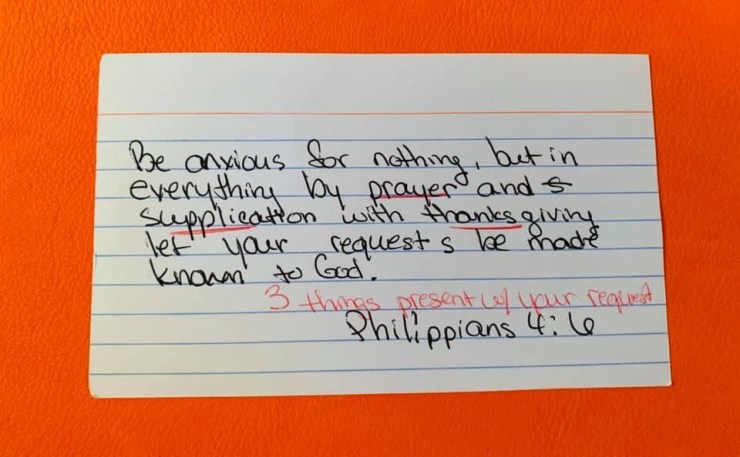 Be anxious for nothing, but in
everything by prayer and s
supplication with thanksgiving
let your requests be made
known to God.
3 things present w/ your request
Philippians 4:6